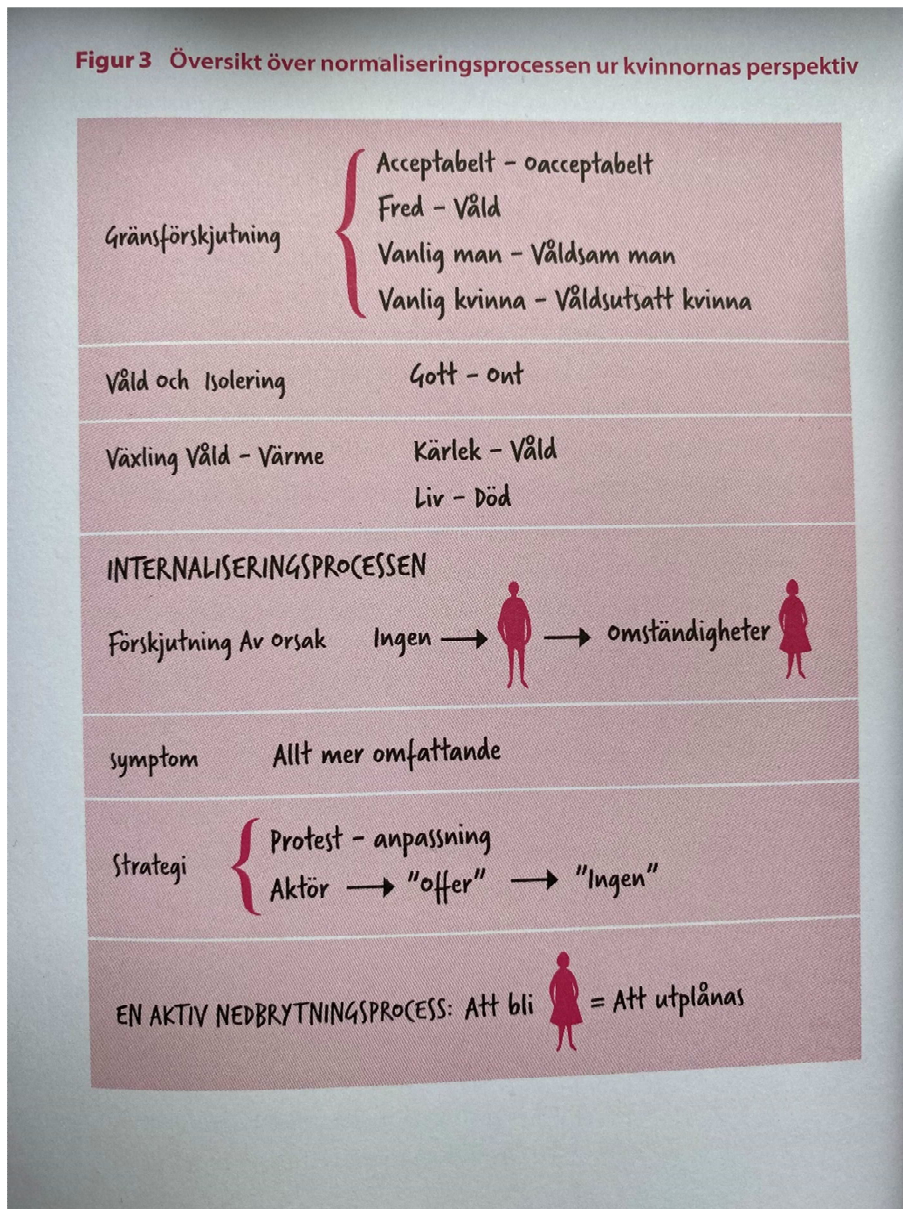 Figur 3 Översikt över normaliseringsprocessen ur kvinnornas perspektiv
Gränsförskjutning
Acceptabelt – oacceptabelt
Fred – Våld
Vanlig man – Våldsam man
Vanlig kvinna – Våldsutsatt kvinna
Våld och Isolering Gott – ont
Växling Våld – Värme Kärlek – Våld
Liv – Död
INTERNALISERINGSPROCESSEN
Förskjutning Av orsak Ingen → → omständigheter
symptom Allt mer omfattande
Strategi
Protest – anpassning
Aktör → "offer" → "Ingen"
EN AKTIV NEDBRYTNINGSPROCESS: Att bli = Att utplånas